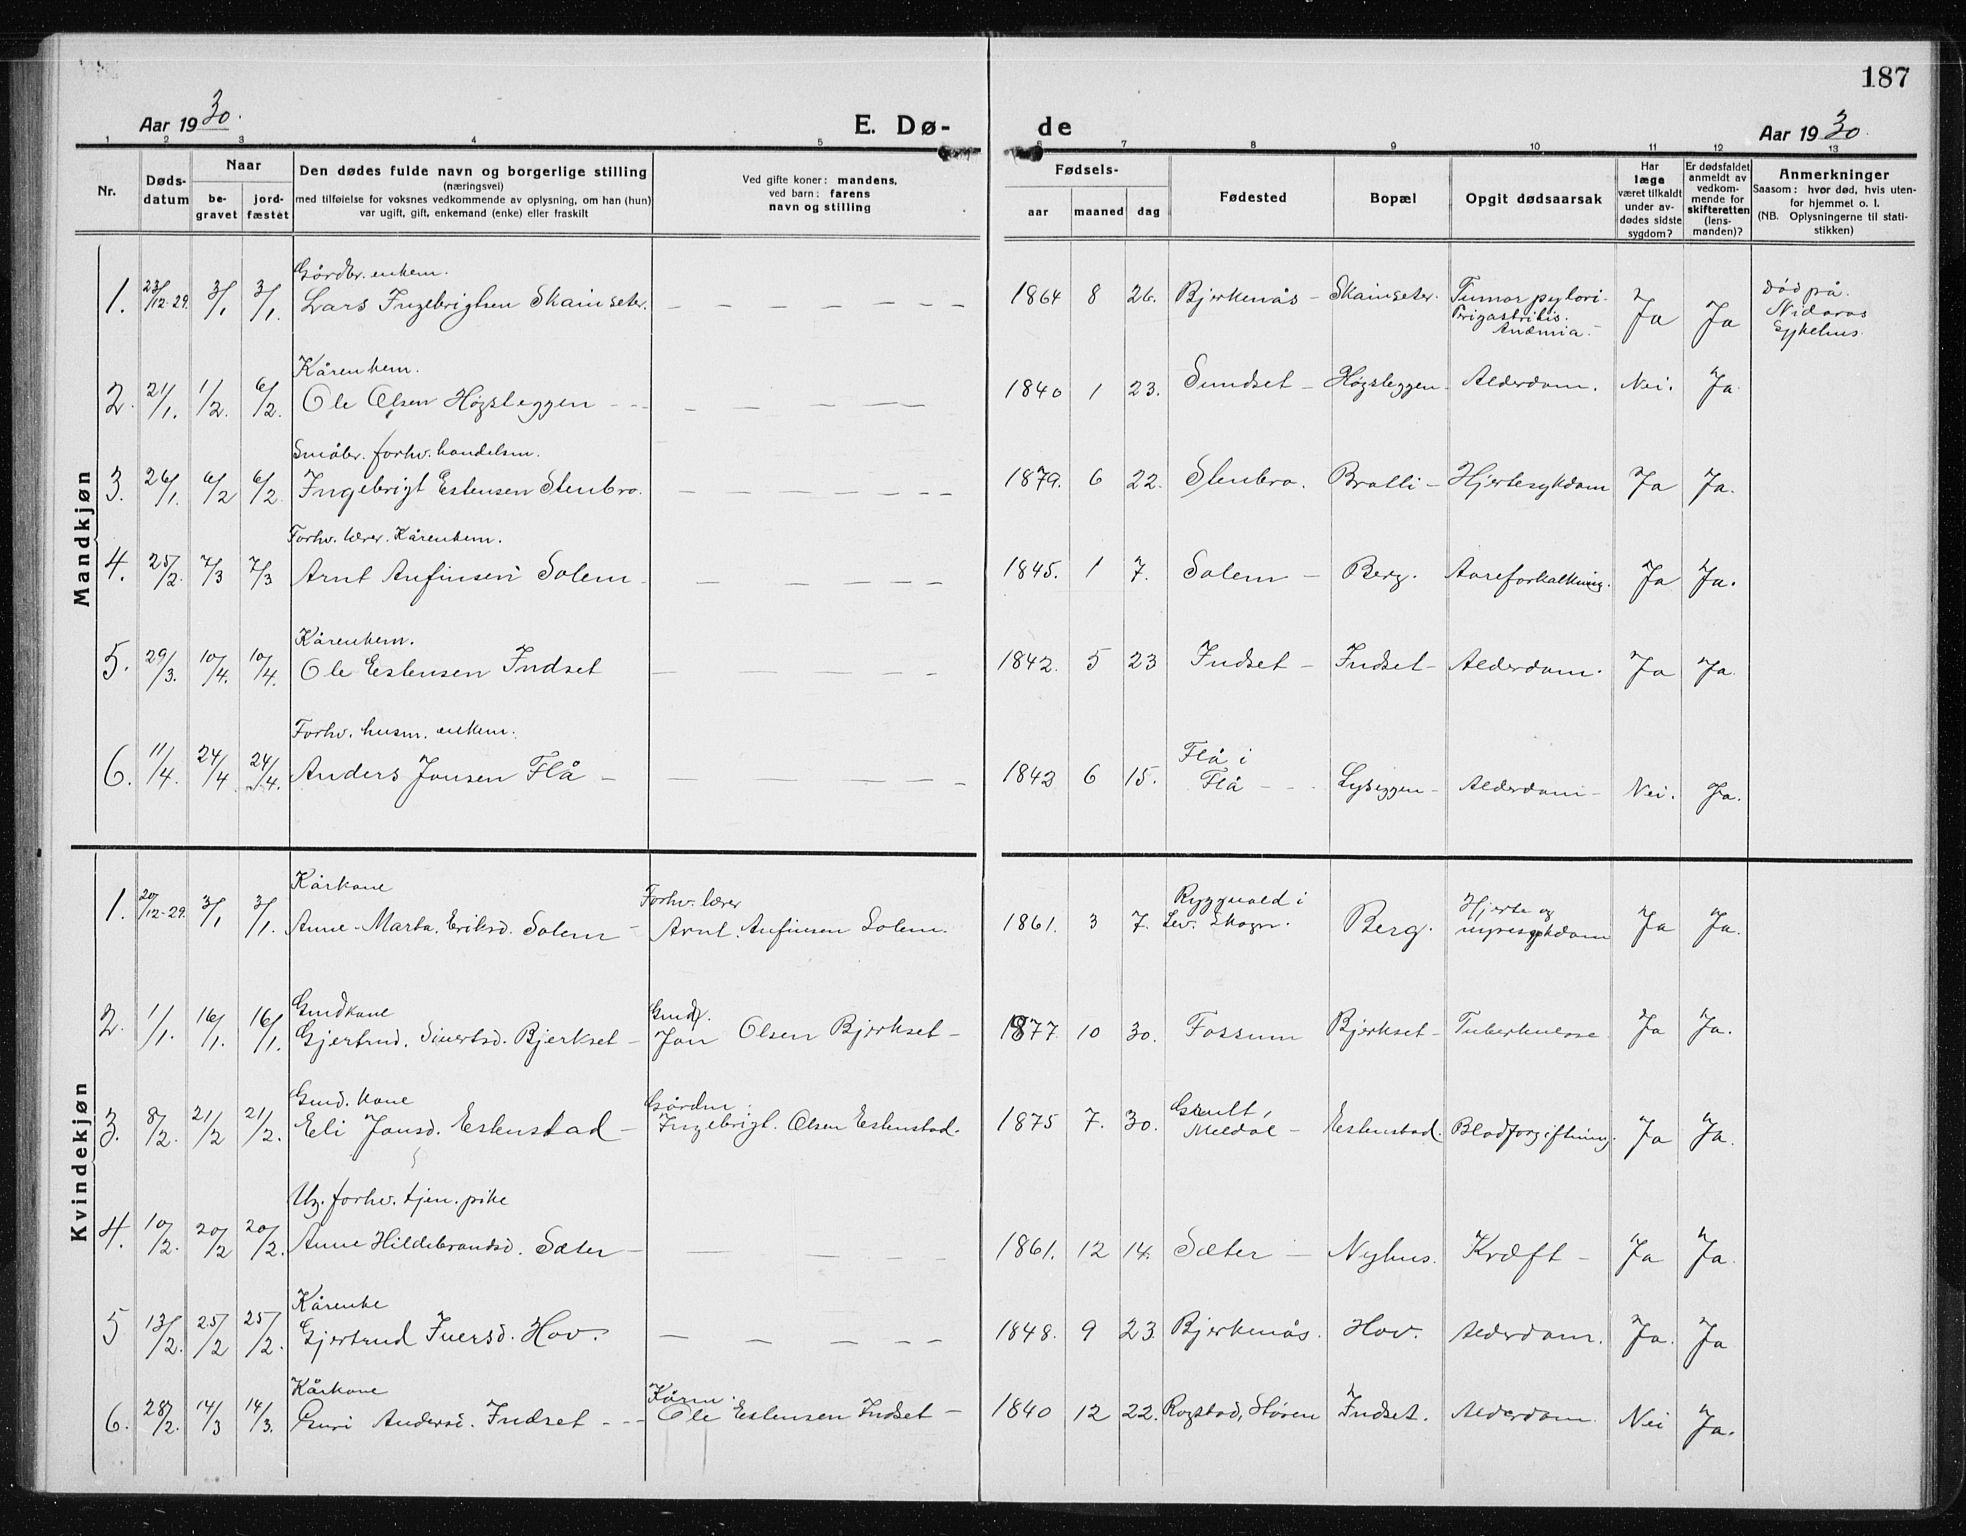 187
Aar 1930.
E. Dø-
de
Aar 1930.
1 2 3 4 5 6 7 8 9 10 11 12 13
Nr.
Døds-
datum
Naar
be-
gravet
jord-
fæstet
Den dødes fulde navn og borgerlige stilling
(næringsvei)
med tilføielse for voksnes vedkommende av oplysning, om han (hun)
var ugift, gift, enkemand (enke) eller fraskilt
Ved gifte koner: mandens,
ved barn: farens
navn og stilling
Fødsels-
aar
maaned
dag
Fødested
Bopæl
Opgit dødsaarsak
Har
læge
været tilkaldt
under av-
dødes sidste
sygdom?
Er dødsfaldet
anmeldt av
vedkom-
mende for
skifteretten
(lens-
manden)?
Anmerkninger
Saasom: hvor død, hvis uten-
for hjemmet o. l.
(NB. Oplysningerne til stati-
stikken)
Mandkjøn
Gårdbr. enkem.
1. 23/12-29. 3/1 3/1. Lars Ingebrigtsen Skainseter. — 1864 8 26. Bjerkenås – Skainseter. Tumor pylori. Ja Ja død på
Perigastritis. Nidaros
Anæmia. – Sykehus.
Kårenkem.
2. 21/1. 1/2. 6/2. Ole Olsen Høgsleggen – – 1840 1 23. Sundset – Høgsleggen – Alderdom. Nei. Ja.
Småbr. forhv. handelsm.
3. 26/1. 6/2 6/2. Ingebrigt Estensen Stenbro. 1879. 6 22. Stenbro. Bratli – Hjertesykdom Ja Ja.
Forhv. lærer. Kårenkem.
4. 25/2. 7/3 7/3 Arnt Anfinsen Solem – 1845. 1 7. Solem – Berg. Aareforkalkning. Ja Ja.
Kårenkem.
5. 29/3. 10/4. 10/4. Ole Estensen Indset 1842. 5 23 Indset – Indset – Alderdom. Ja Ja.
Forhv. husm. enkem.
6. 11/4. 24/4 24/4. Anders Jonsen Flå – 1842 6 15. Flå i
Flå – – Lyseggen – Alderdom – Nei. Ja.
Kvindekjøn
Kårkone Forhv. lærer Ryggvold i Hjerte og
1. 20/12-29. 3/1 3/1. Anne-Marta. Eriksd. Solem – Arnt. Anfinsen Solem. 1861. 3 7. Lev. Skogn. Berg. nyresykdom Ja Ja.
Gmdkone Gmd.
2. 1/1. 16/1. 16/1. Gjertrud. Sivertsd. Bjerkset – Jon Olsen Bjerkset – 1877 10 30. Fossum Bjerkset – Tuberkulose Ja Ja.
Gmd. kone Gårdm.
3. 8/2. 21/2 21/2. Eli Jonsd. Estenstad – Ingebrigt. Olsen Estenstad. 1875 7. 30. Meldal – Estenstad. Blodforgiftning. Ja Ja.
Ug. forhv. tjen. pike
4. 10/2. 20/2 20/2. Anne Hildebrandsd. Sæter – 1861. 12 14. Sæter – Nyhus. Kræft – Ja Ja.
Kårenke
5 13/2. 25/2 25/2. Gjertrud Iversd. Hov. 1848. 9 23. Bjerkenås. Hov. Alderdom. Ja. Ja
Kårkone Kårm.
6. 28/2. 14/3 14/3. Guri Andersd. Indset – – – Ole Estensen Indset – 1840 12 22. Rogstad, Støren Indset. Alderdom. Nei Ja.